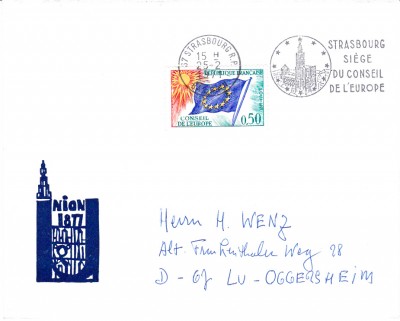 67 STRASBOURG R.P.
15 H
25-2
STRASBOURG
SIÈGE
DU CONSEIL
DE L'EUROPE
REPUBLIQUE FRANÇAISE
CONSEIL
DE L'EUROPE
0,50
1977
Herrn H. WENZ
Alt. Frankenthaler Weg 28
D - 67 LU-OGGERSHEIM